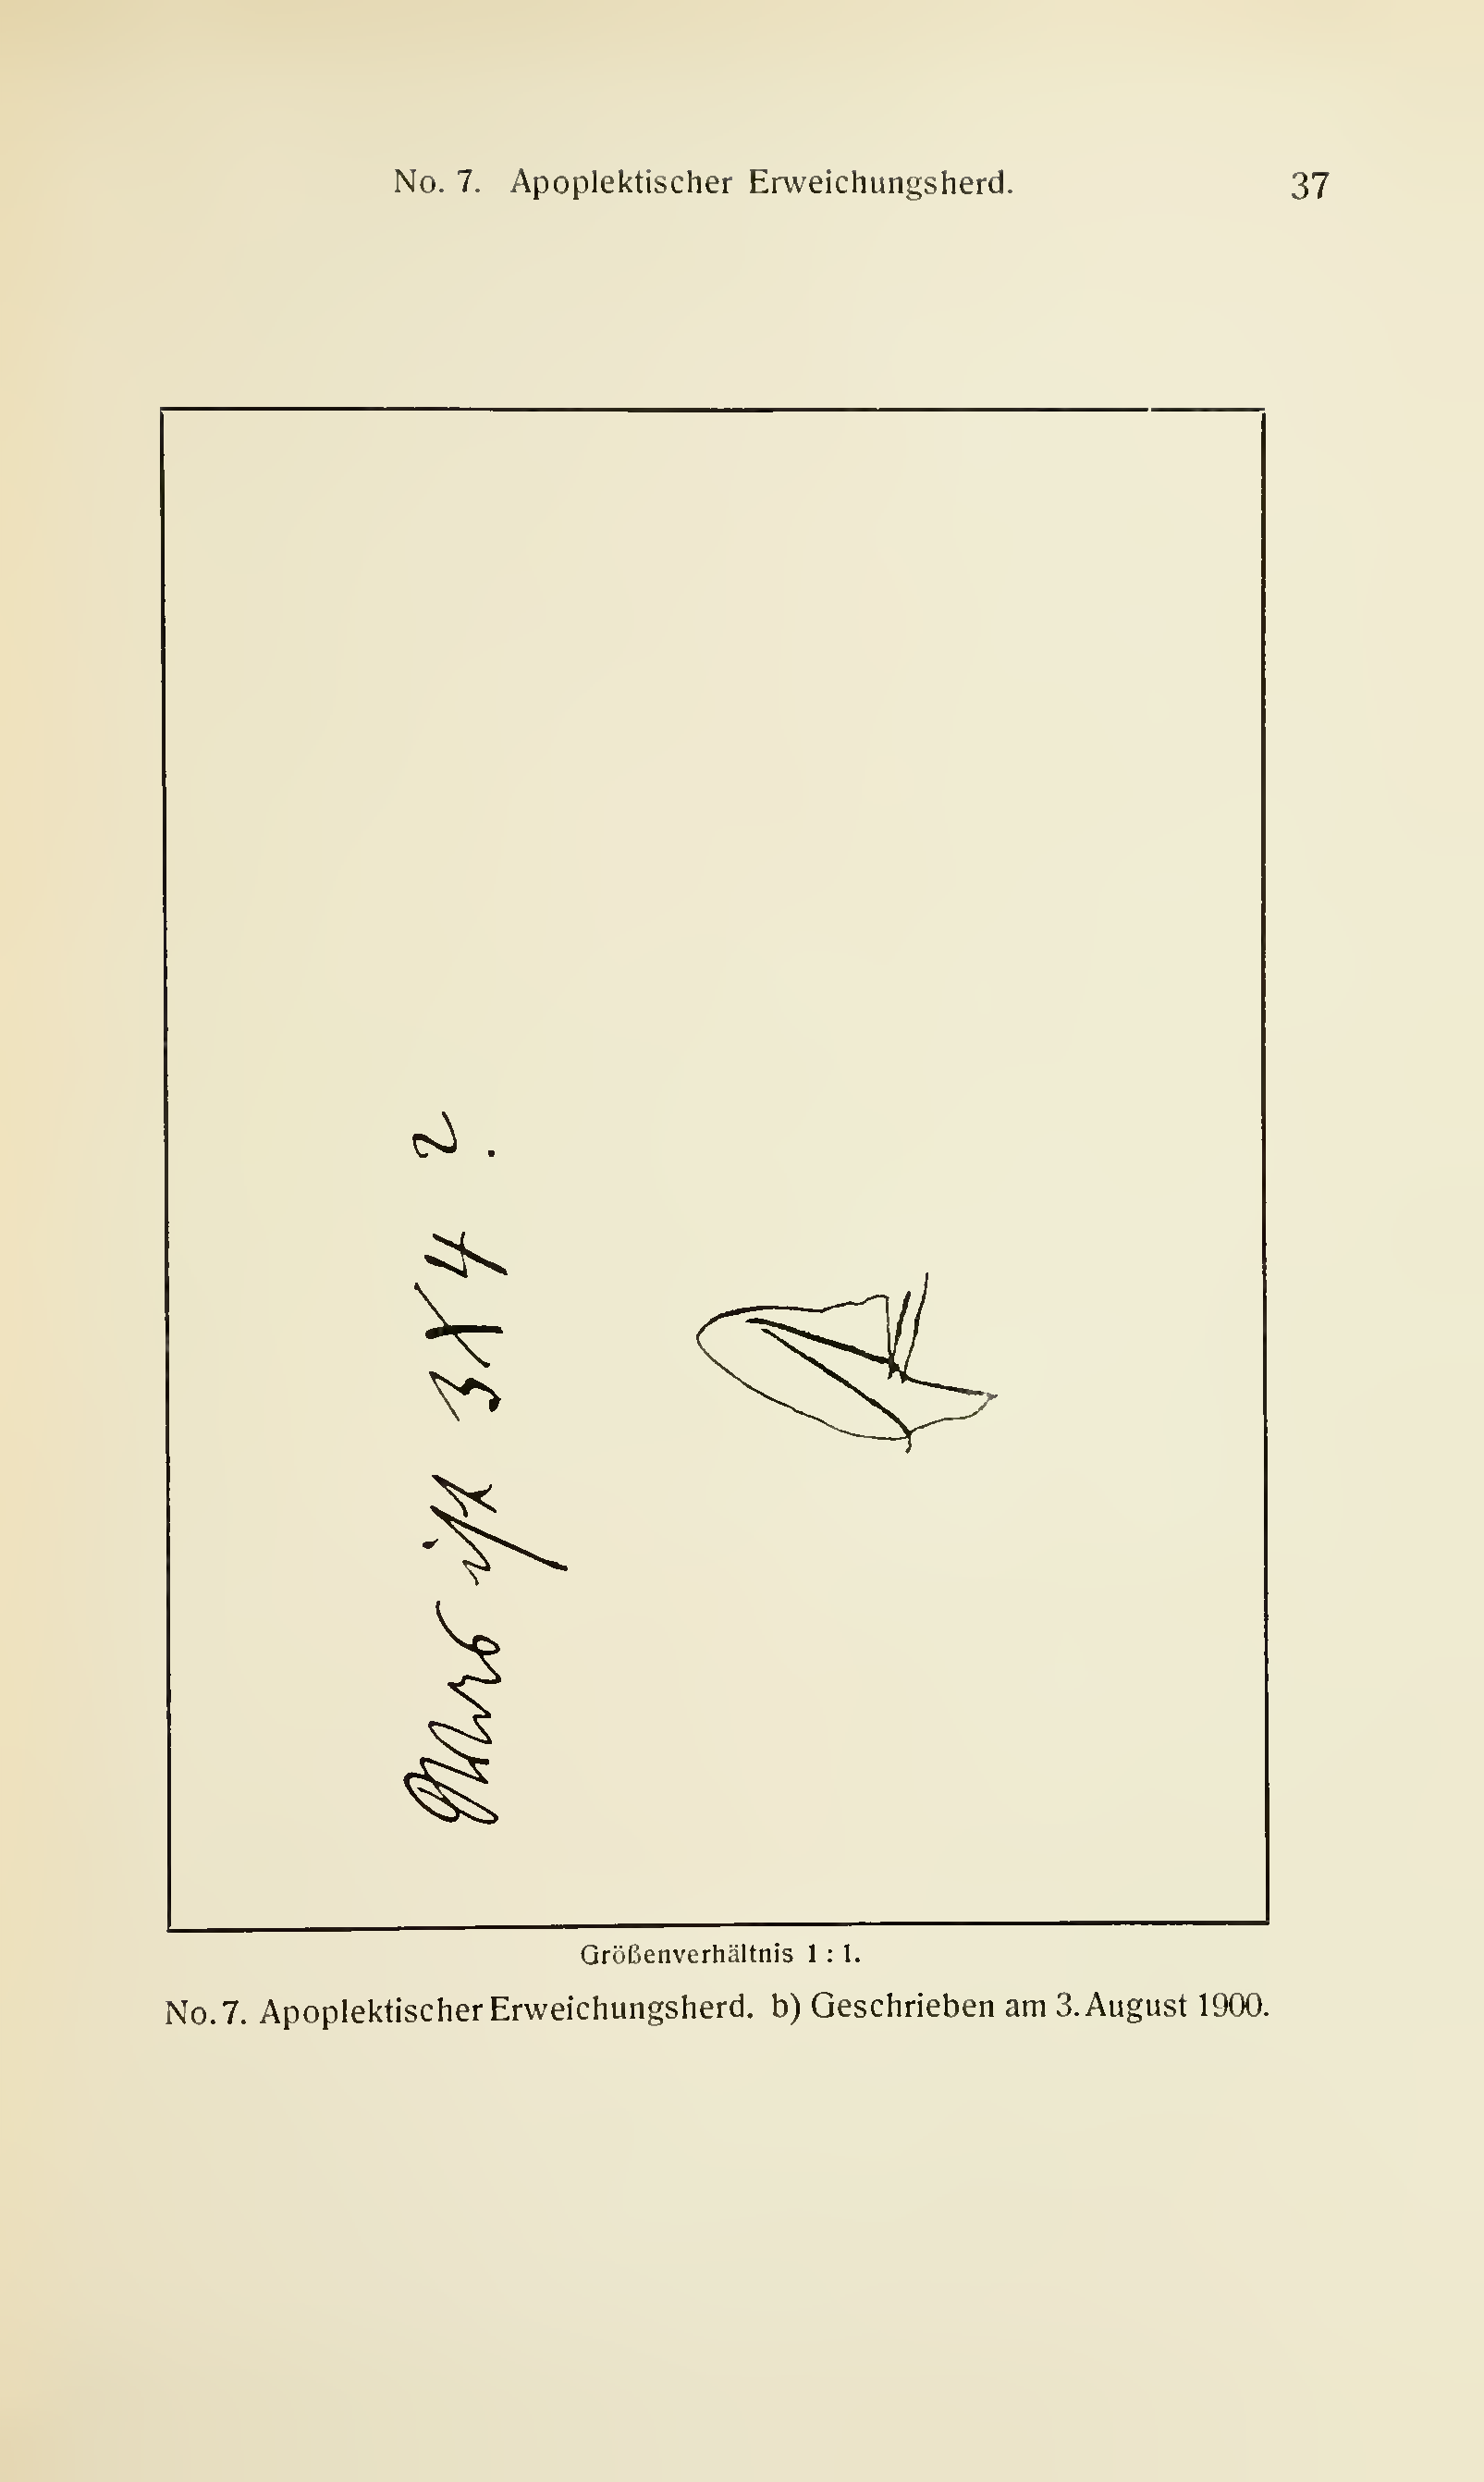 No. 7. Apoplektischer Erweichungsherd.
37
Was ist 3X4 ?
Größenverhältnis 1 : 1.
No. 7. Apoplektischer Erweichungsherd. b) Geschrieben am 3. August 1900.